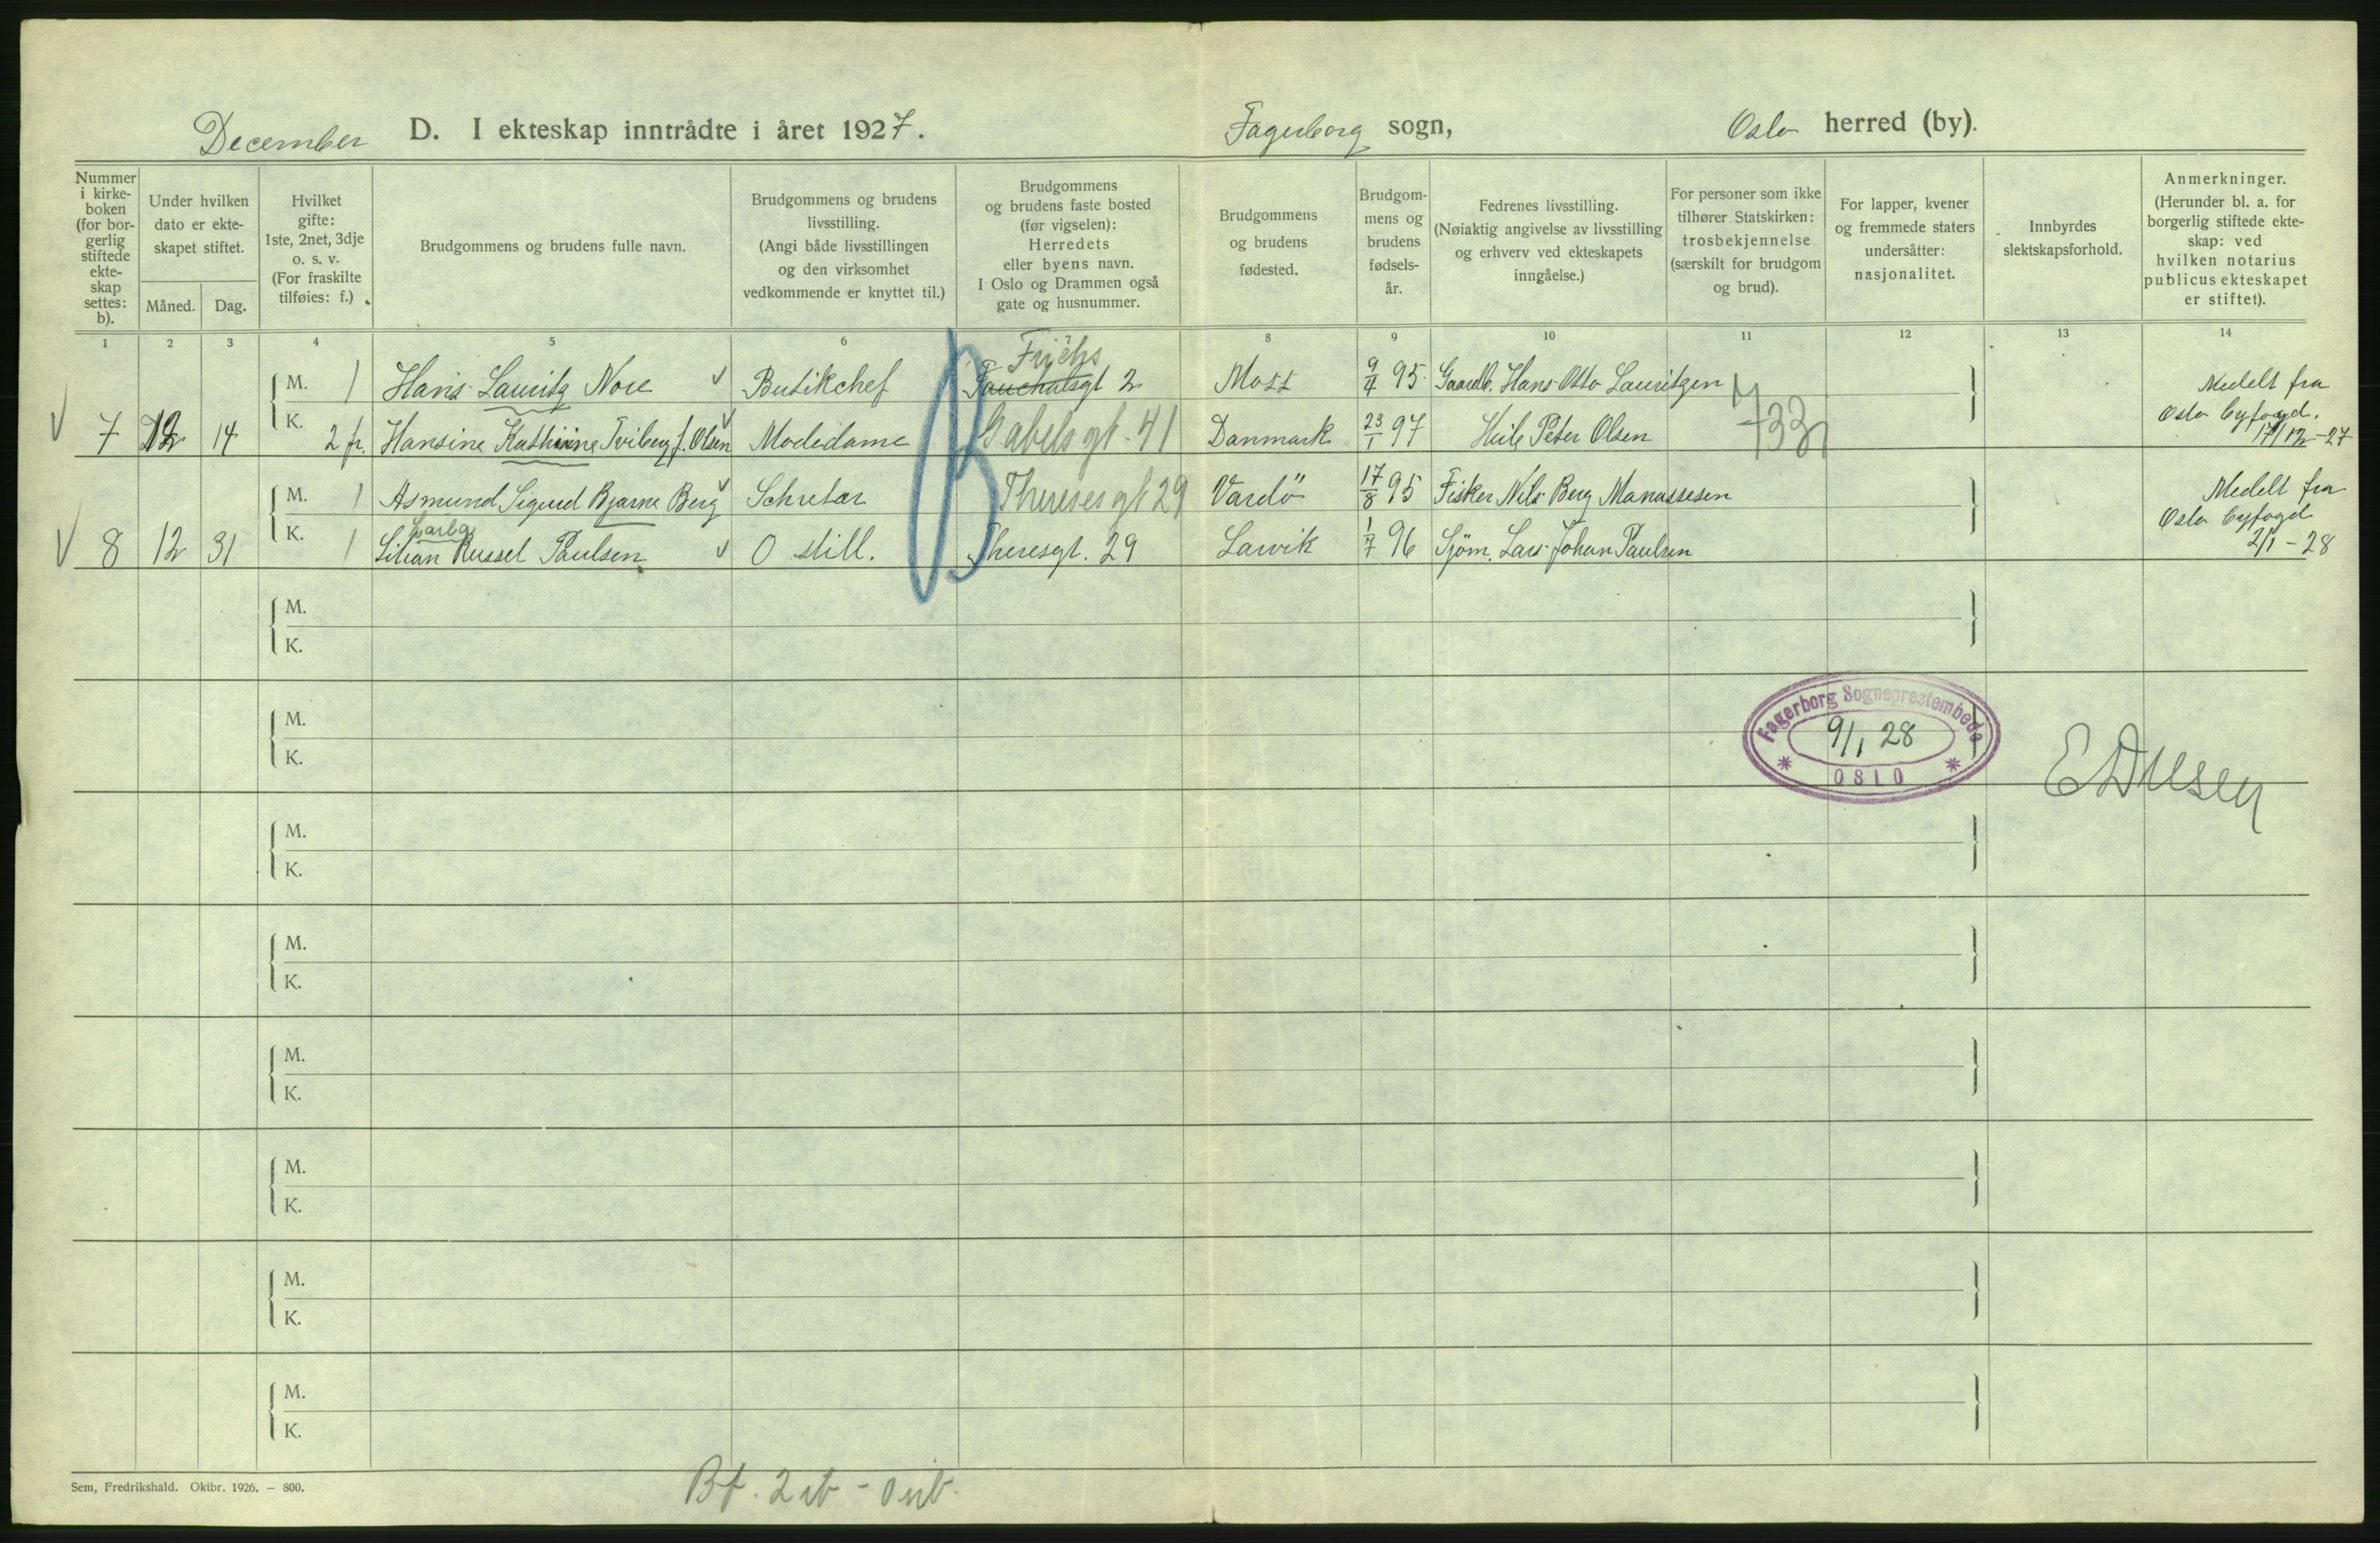 December D. I ekteskap inntrådte i året 1927. Fagerborg sogn, Oslo herred (by).
Nummer i kirke- boken (for bor- gerlig stiftede ekte- skap settes: b).
Under hvilken dato er ekte- skapet stiftet.
Måned. Dag.
Hvilket gifte: 1ste, 2net, 3dje o. s. v. (For fraskilte tilføies: f.)
Brudgommens og brudens fulle navn.
Brudgommens og brudens livsstilling. (Angi både livsstillingen og den virksomhet vedkommende er knyttet til.)
Brudgommens og brudens faste bosted (før vigselen): Herredets eller byens navn. I Oslo og Drammen også gate og husnummer.
Brudgommens og brudens fødested.
Brudgom- mens og brudens fødsels- år.
Fedrenes livsstilling. (Nøiaktig angivelse av livsstilling og erhverv ved ekteskapets inngåelse.)
For personer som ikke tilhører Statskirken: trosbekjennelse (særskilt for brudgom og brud).
For lapper, kvener og fremmede staters undersåtter: nasjonalitet.
Innbyrdes slektskapsforhold.
Anmerkninger. (Herunder bl. a. for borgerlig stiftede ekte- skap: ved hvilken notarius publicus ekteskapet er stiftet).
1 2 3 4 5 6 8 9 10 11 12 13 14
Frichs
M. 1 Hans Lauritz Nore Butikchef 2 Moss 9/4 95 Gaardb. Hans Otto Lauritzen Medelt fra
Oslo byfogd.
7 12 14 K. 2 fr. Hansine Kathinne Tviberg f. Olsen Modedame Gabels gt. 41 Danmark 23/1 97 Peter Olsen 733 17/12-27
M. 1 Asmund Sigurd Bjarne Berg Sekretær Theresesgt 29 Vardö 17/8 95 Fisker Nils Berg Manassesen Medelt fra
Oslo byfogd
Larba
8 12 31 K. 1 Lilian Russel Paulsen O still. Theresgt. 29 Larvik 1/7 96 Sjöm. Lars Johan Paulsen 2/1-28
M.
K.
M.
K.
Fagerborg Sogneprestembede
9/1 28
OSLO
M.
K.
M.
K.
M.
K.
M.
K.
M.
K.
M.
K.
Sem, Fredrikshald. Oktbr. 1926. — 800.
Bf. 2 ib - 0 uib.